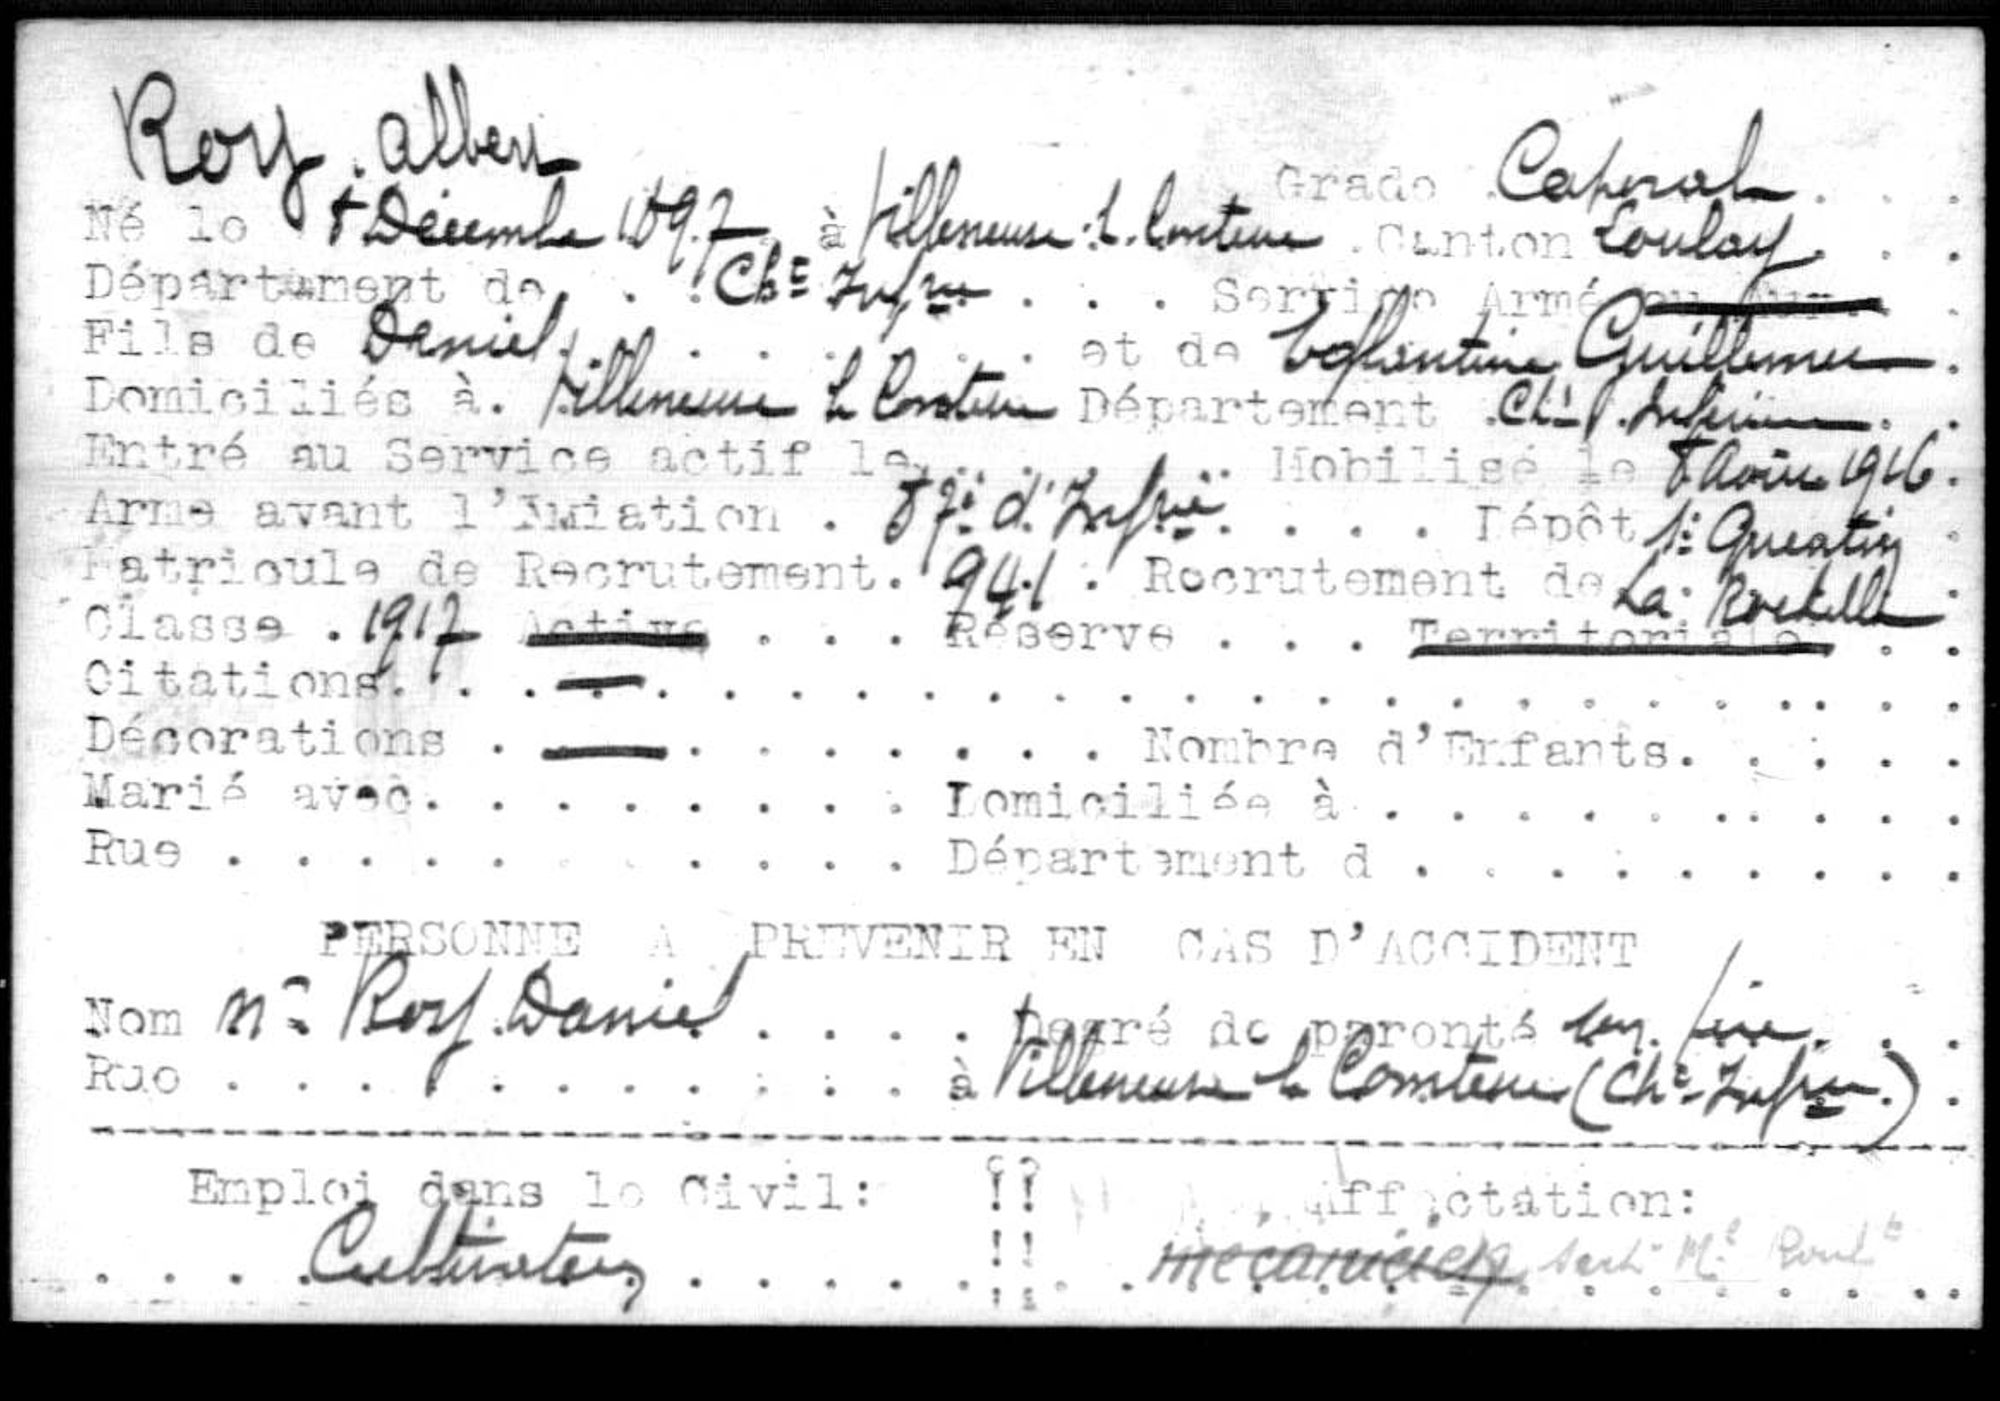 Roy. Albert
Grade Caporal
Né le 8 Décembre 1897 à Villeneuve. L. Comtesse Canton Loulay
Département de Chte Infre Service Armé ou Aux.
Fils de Daniel et de Eglantine Guillemet
Domiciliés à. Villeneuve la Comtesse Département Chte Inférieure
Entré au Service actif le Mobilisé le 8 Août 1916.
Arme avant l'Aviation . 87è d'Infrie Dépôt St Quentin
Matricule de Recrutement. 941 . Recrutement de La Rochelle
Classe . 1917 Active . . . Réserve . . . Territoriale
Citations. — 
Décorations . — Nombre d'Enfants.
Marié avec. Domiciliée à
Rue Département d
PERSONNE A PREVENIR EN CAS D'ACCIDENT
Nom Mr Roy Daniel Degré de parenté son père
Rue à Villeneuve la Comtesse (Chte Infre.)
Emploi dans le Civil: !! Affectation:
Cultivateur !! mécanicien